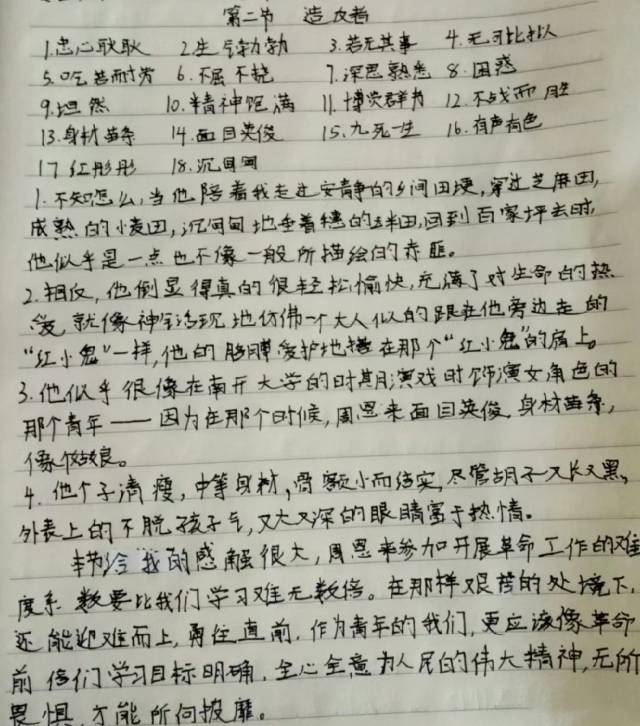 第二节 造反者
1.忠心耿耿 2.生气勃勃 3.若无其事 4.无可比拟
5.吃苦耐劳 6.不屈不挠 7.深思熟虑 8.困惑
9.坦然 10.精神饱满 11.博览群书 12.不战而胜
13.身材苗条 14.面目英俊 15.九死一生 16.有声有色
17红彤彤 18.沉甸甸
1.不知怎么,当他陪着我走过安静的乡间田埂,穿过芝麻田,
成熟的小麦田,沉甸甸地垂着穗的玉米田,回到百家坪去时,
他似乎是一点也不像一般所描绘的赤匪。
2.相反,他倒显得真的很轻松愉快,充满了对生命的热
爱,就像神气活现地仿佛一个大人似的跟在他旁边走的
“红小鬼”一样,他的胳膊爱护地搭在那个“红小鬼”的肩上。
3.他似乎很像在南开大学的时期演戏时饰演女角色的
那个青年——因为在那个时候,周恩来面目英俊,身材苗条,
像个姑娘。
4.他个子清瘦,中等身材,骨骼小而结实,尽管胡子又长又黑,
外表上仍不脱孩子气,又大又深的眼睛富于热情。
本节给我的感触很大,周恩来参加开展革命工作的难
度系数要比我们学习难无数倍。在那样艰苦的处境下,
还能迎难而上,勇往直前,作为青年的我们,更应该像革命
前辈们学习目标明确,全心全意为人民的伟大精神,无所
畏惧,才能所向披靡。